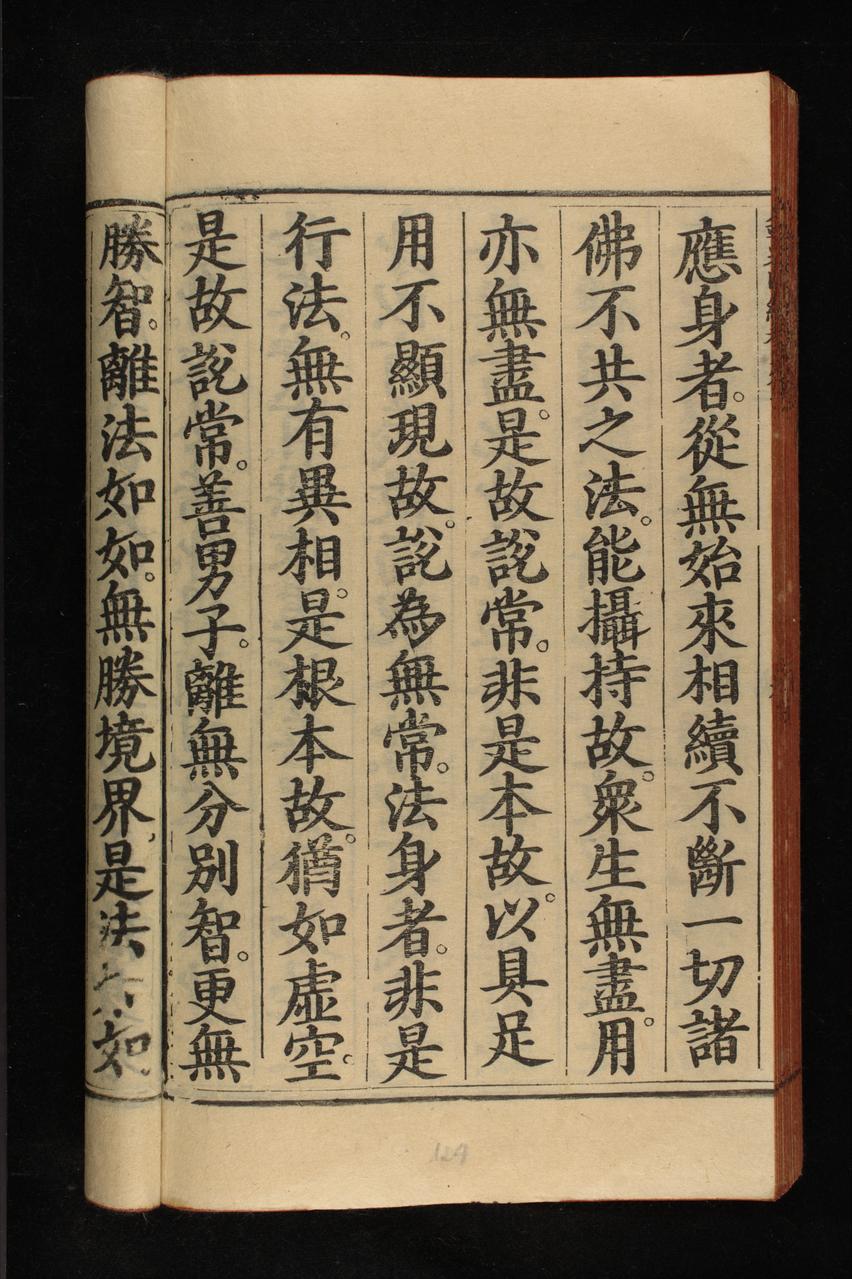 應身者。從無始來相續不斷一切諸
佛不共之法。能攝持故。衆生無盡。用
亦無盡。是故説常。非是本故。以具足
用不顯現故。説為無常。法身者。非是
行法。無有異相。是根本故。猶如虛空。
是故説常。善男子。離無分別智。更無
勝智。離法如如。無勝境界。是法如
124